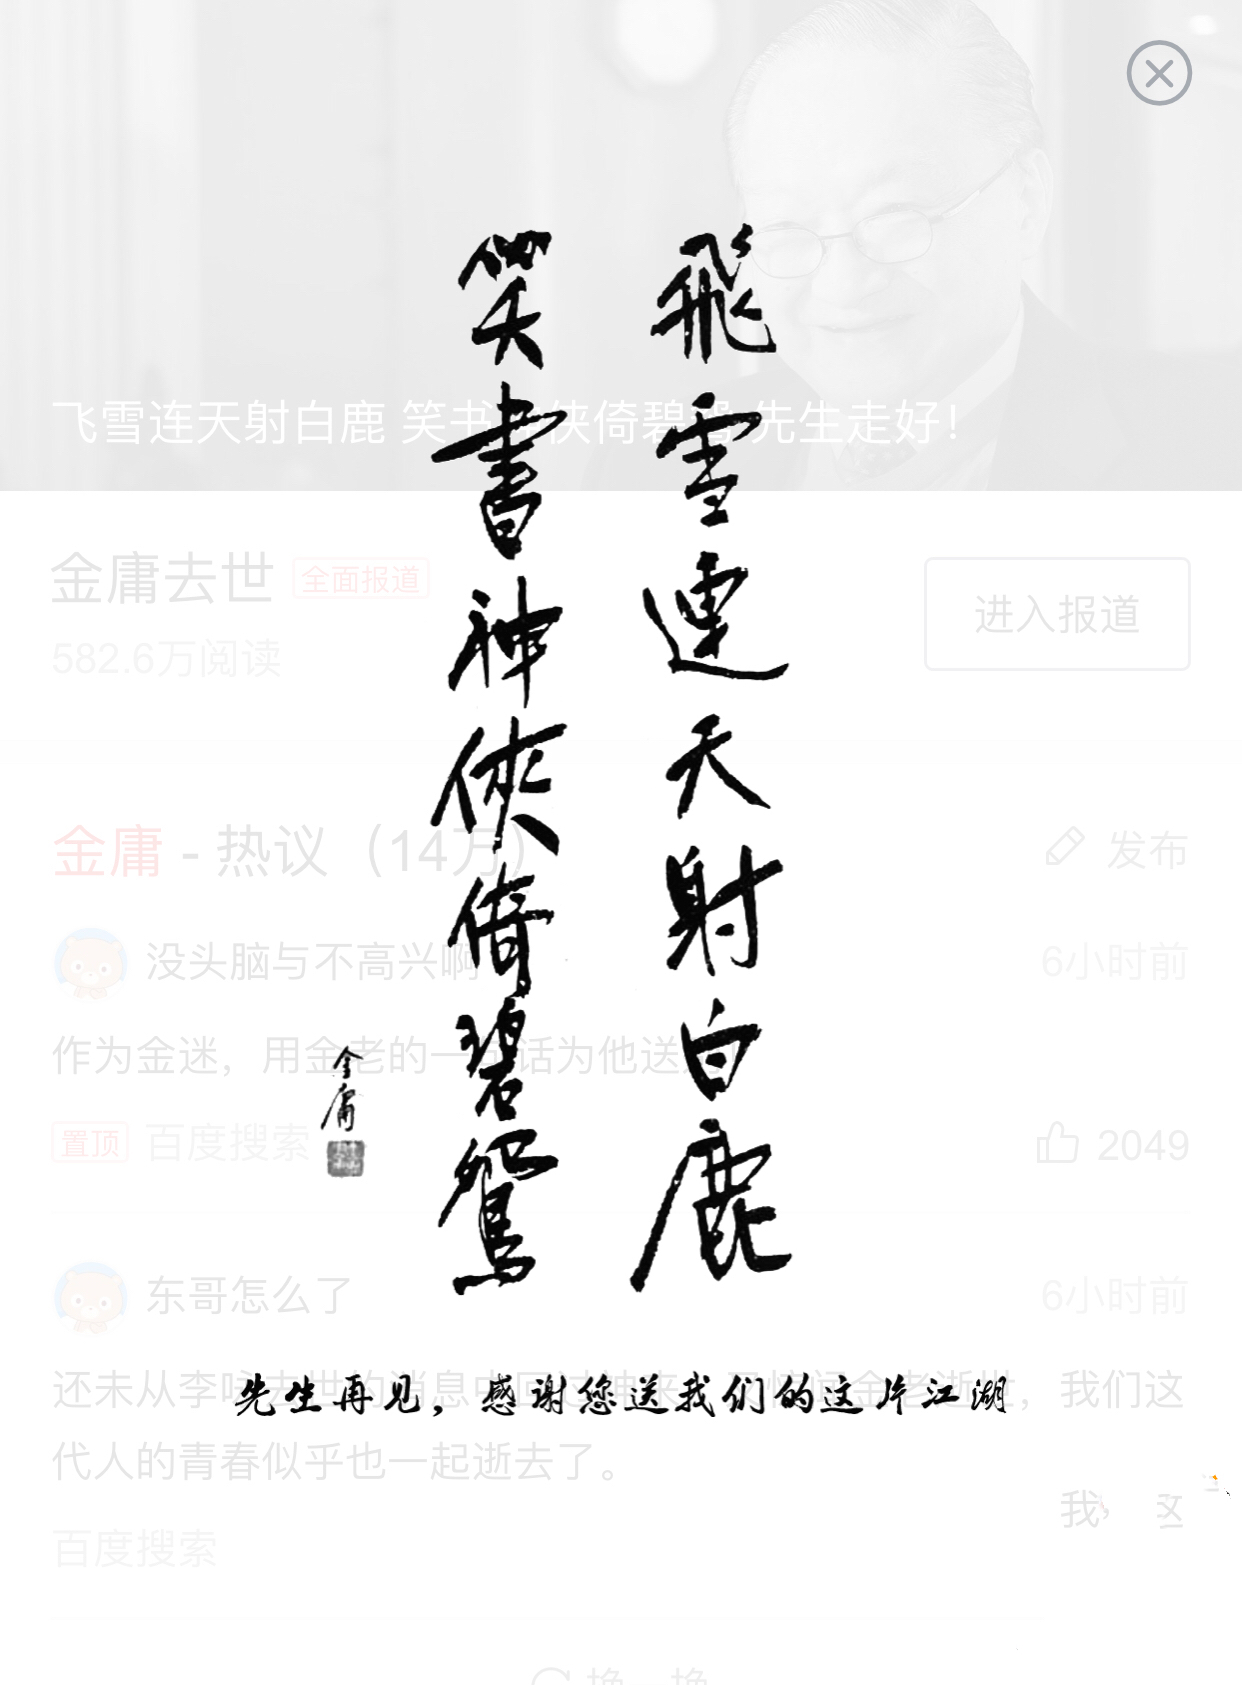 飛雪連天射白鹿
笑書神俠倚碧鴛
金庸
先生再见，感谢您送我们的这片江湖
飞雪连天射白鹿 笑书神侠倚碧鸳 先生走好！
金庸去世 全面报道
582.6万阅读
进入报道
金庸 - 热议（14万）
发布
没头脑与不高兴啊
6小时前
作为金迷，用金老的一 话为他送
置顶 百度搜索
2049
东哥怎么了
6小时前
还未从李咏去世的消息 回 神 金 逝世，我们这
代人的青春似乎也一起逝去了。
我， 这
百度搜索
换 换